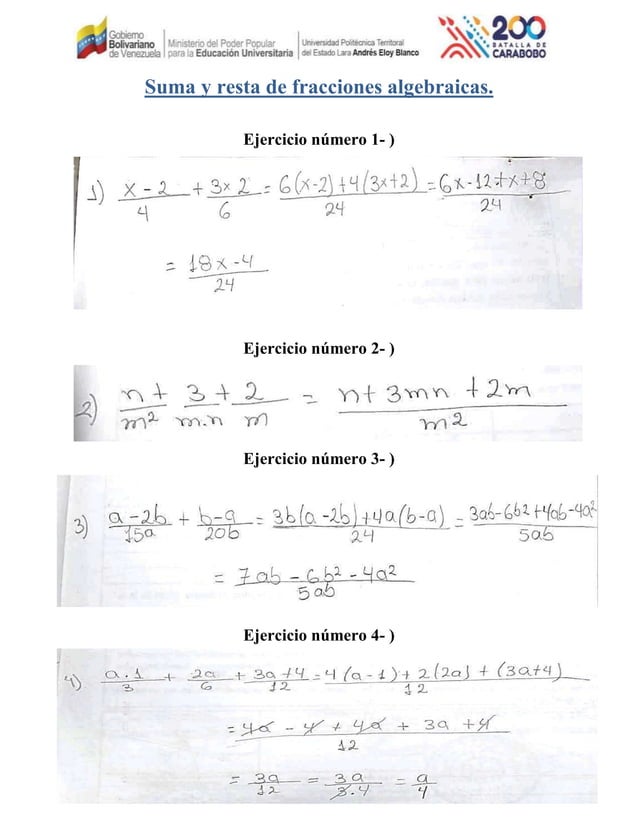 Gobierno
Bolivariano
de Venezuela
Ministerio del Poder Popular
para la Educación Universitaria
Universidad Politécnica Territorial
del Estado Lara Andrés Eloy Blanco
200
BATALLA DE
CARABOBO
Suma y resta de fracciones algebraicas.
Ejercicio número 1- )
1) x - 2 / 4 + 3x 2 / 6 = 6(x-2)+4(3x+2) / 24 = 6x-12+x+8 / 24
= 18x-4 / 24
Ejercicio número 2- )
2) n / m² + 3 / m.n + 2 / m = n+3mn+2m / m²
Ejercicio número 3- )
3) a-2b / 15a + b-a / 20b = 3b(a-2b)+4a(b-a) / 24 = 3ab-6b²+4ab-4a² / 5ab
= 7ab-6b²-4a² / 5ab
Ejercicio número 4- )
4) a.1 / 3 + 2a / 6 + 3a+4 / 12 = 4(a-1)+2(2a)+(3a+4) / 12
= 4a - 4 + 4a + 3a + 4 / 12
= 3a / 12 = 3a / 3.4 = a / 4